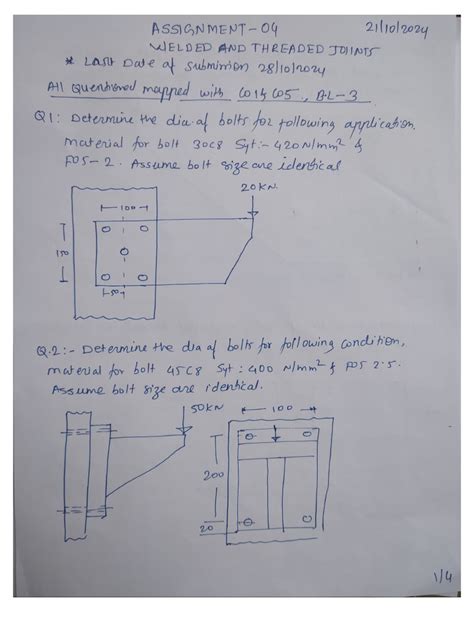 ASSIGNMENT-04 21/10/2024
WELDED AND THREADED JOINTS
* Last Date of submission 28/10/2024
All Questioned mapped with CO14CO5, BL-3
Q1: Determine the dia. of bolts for following application.
material for bolt 30C8 Syt:- 420 N/mm² &
FOS-2. Assume bolt size are identical
20 KN
100
150
50
Q.2:- Determine the dia of bolts for following condition,
material for bolt 45C8 Syt: 400 N/mm² & FOS 2.5.
Assume bolt size are identical.
50KN
100
200
20
1/4